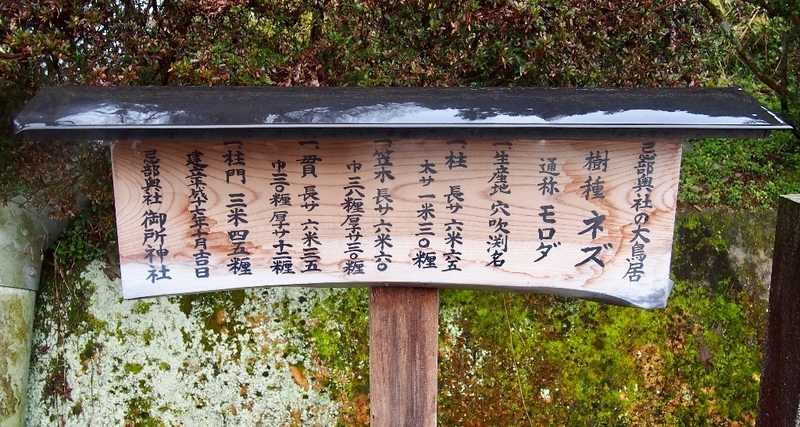 忌部奥社の大鳥居
樹種 ネズ
通称 モロダ
一、生産地 穴吹渕名
一、柱 長サ 六米六五
太サ 一米三〇糎
一、笠木 長サ 六米六〇
巾三八糎 厚サ三〇糎
一、貫 長サ 六米三五
巾三〇糎 厚サ十二糎
一、柱門 三米四五糎
建立 平成 年十月吉日
忌部奥社 御所神社